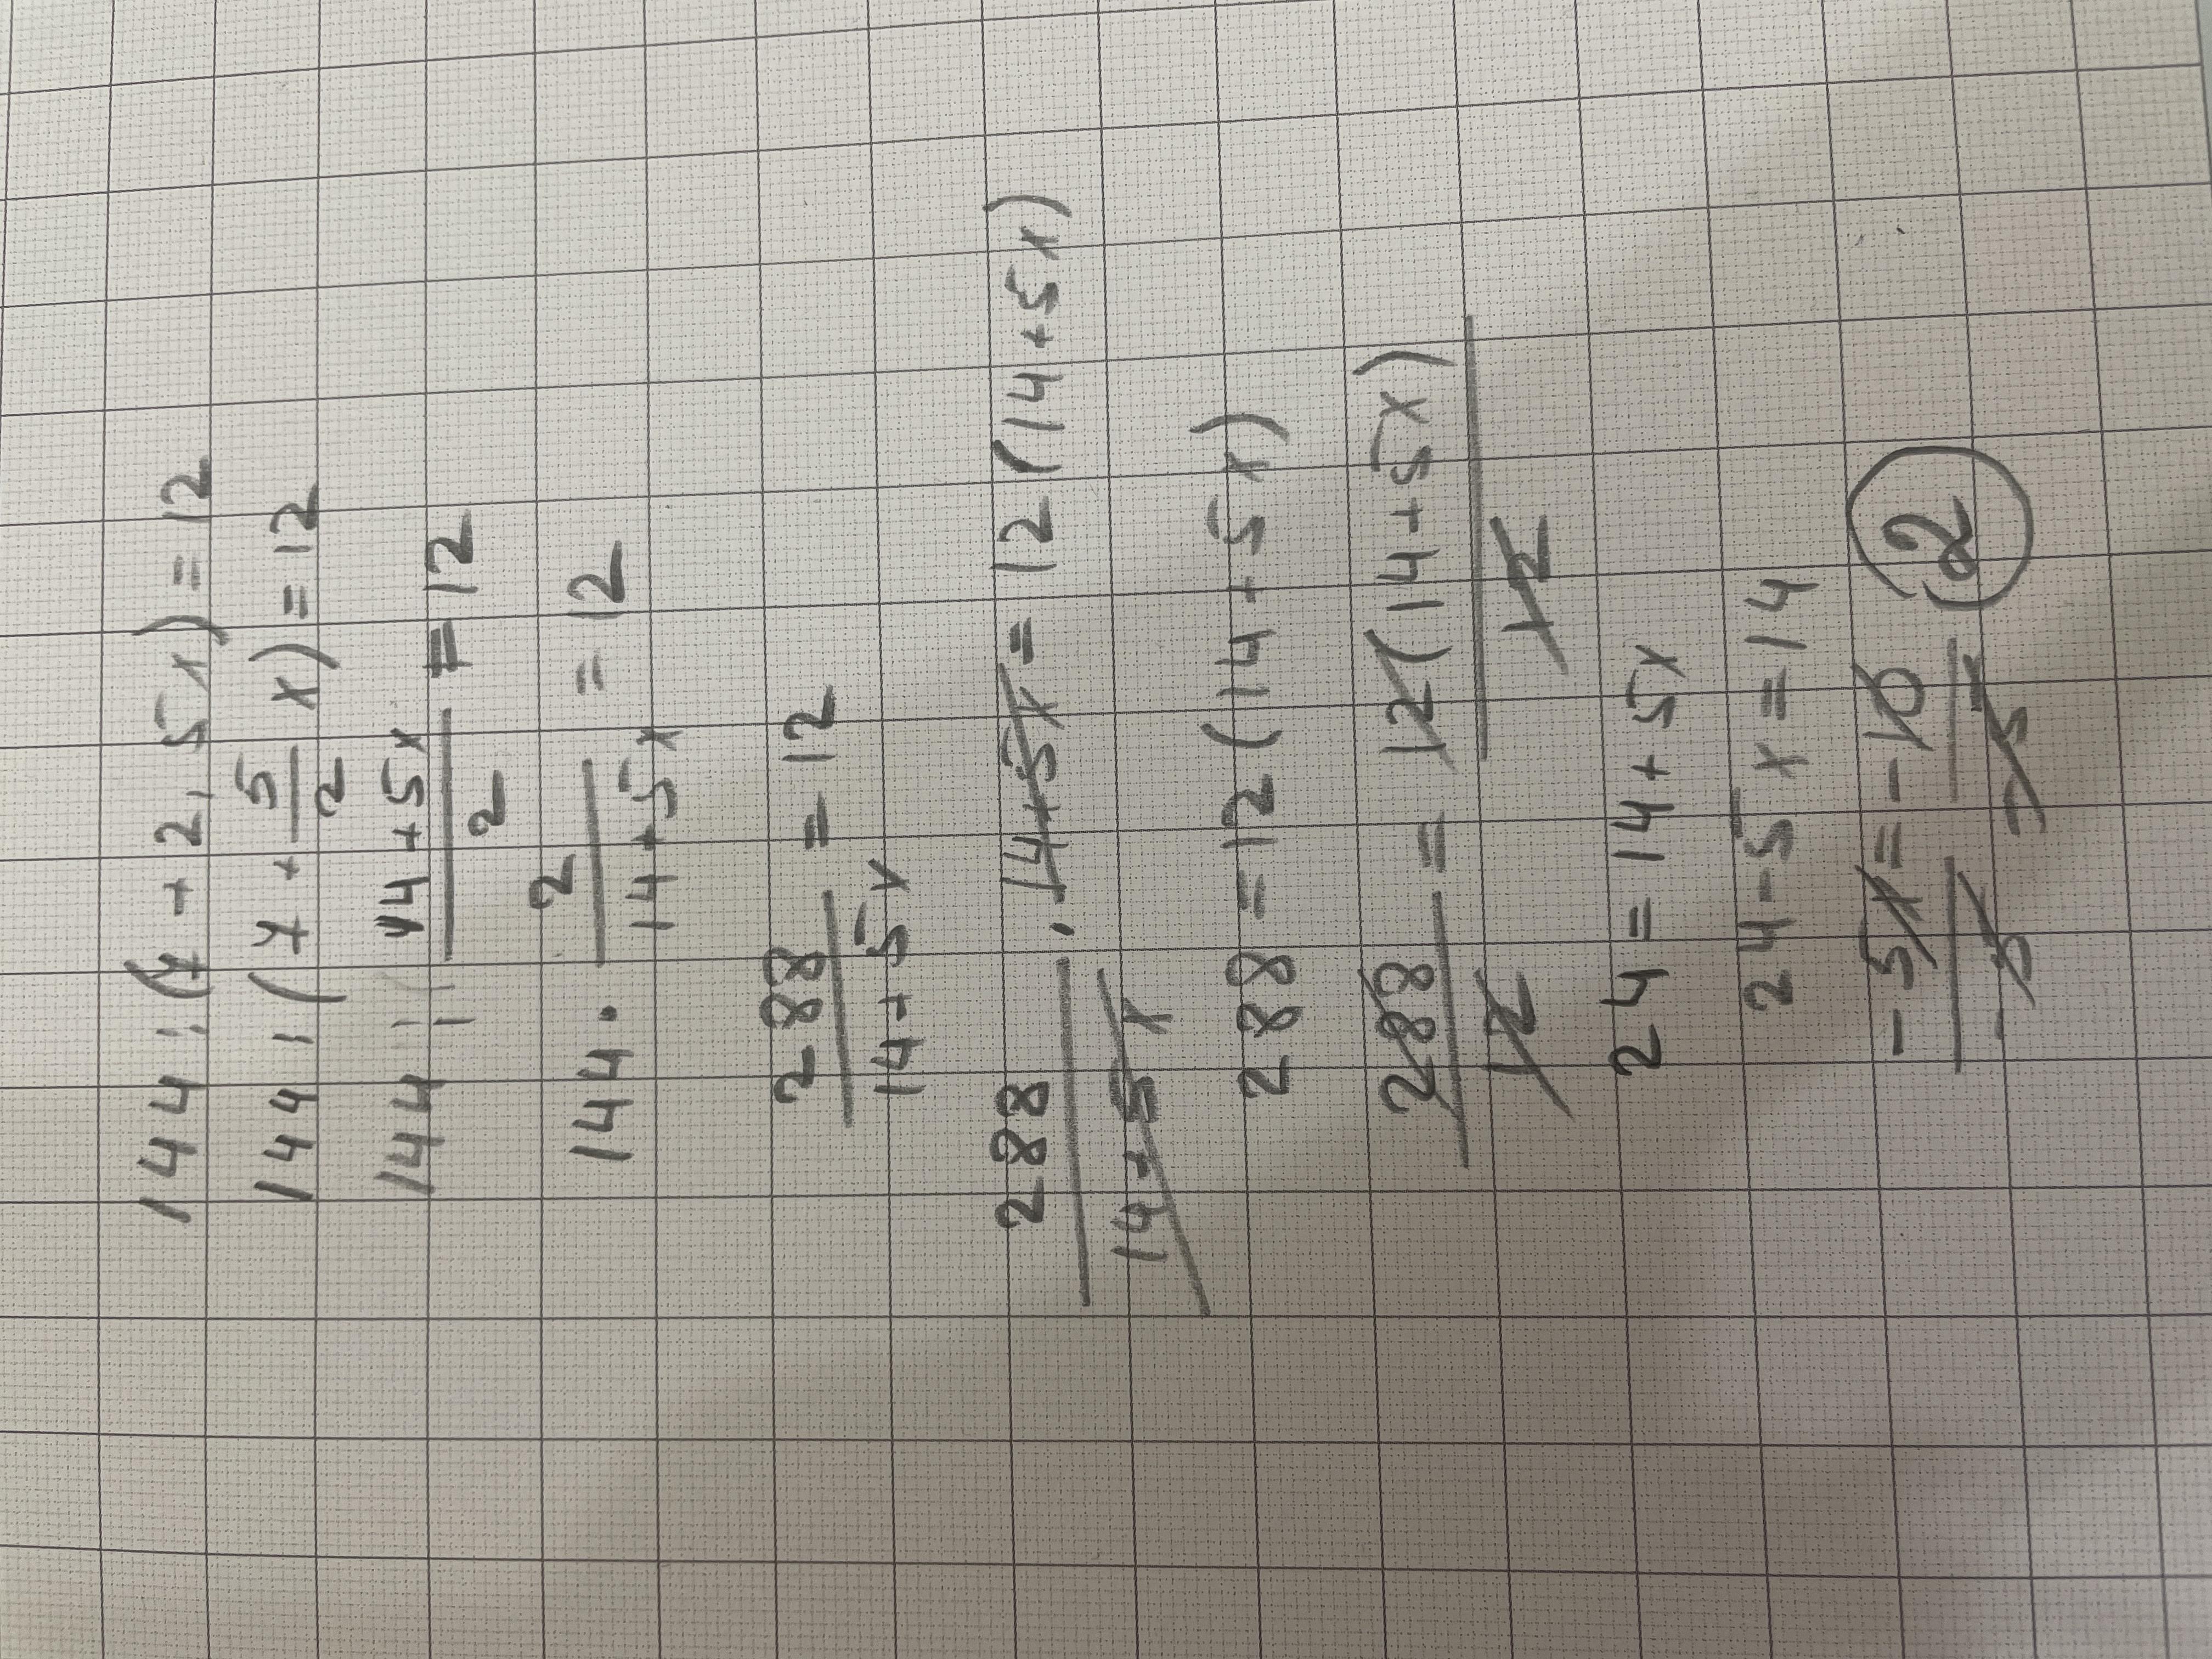 144 : (7 + 2,5x) = 12
144 : (7 + 5/2 x) = 12
144 : 14+5x/2 = 12
144 · 2/14+5x = 12
288/14+5x = 12
288/14+5x · 14+5x = 12(14+5x)
288 = 12(14+5x)
288/12 = 12(14+5x)/12
24 = 14+5x
24-5x = 14
-5x/-5 = -10/-5 2